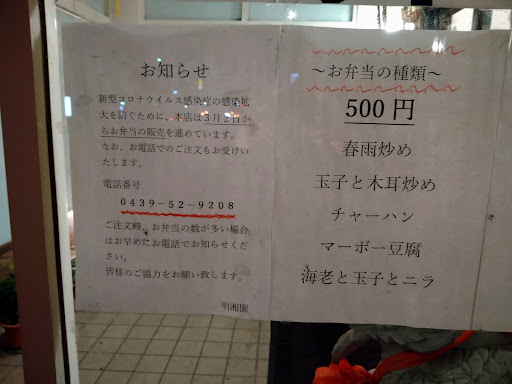 お知らせ
新型コロナウイルス感染症の感染拡
大を防ぐために、本店は3月2日か
らお弁当の販売を進めています。
なお、お電話でのご注文もお受けい
たします。
電話番号
0439-52-9208
ご注文時、お弁当の数が多い場合
はお早めにお電話でお知らせくだ
さい。
皆様のご協力をお願い致します。
明湘園
～お弁当の種類～
500円
春雨炒め
玉子と木耳炒め
チャーハン
マーボー豆腐
海老と玉子とニラ